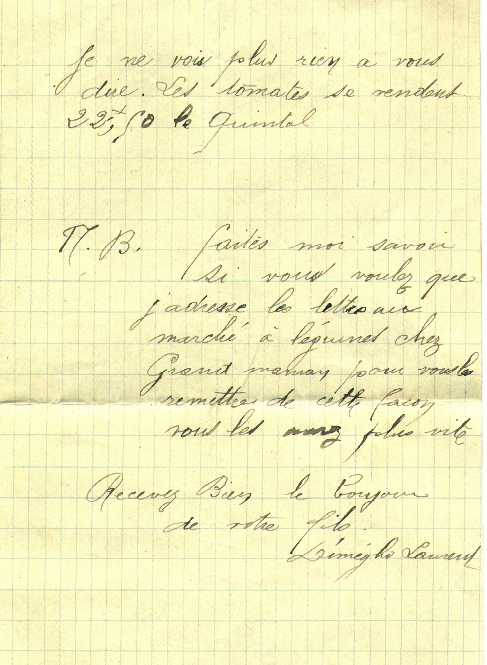 Je ne vois plus rien a vous
dire. Les tomates se vendent
22f,50 le Quintal
N. B. faites moi savoir
si vous voulez que
j'adresse les lettres aux
marché à légumes chez
Grand maman pour vous les
remettre de cette façon
vous les plus vite
Recevez Bien le Bonjour
de votre fils.
Laurent